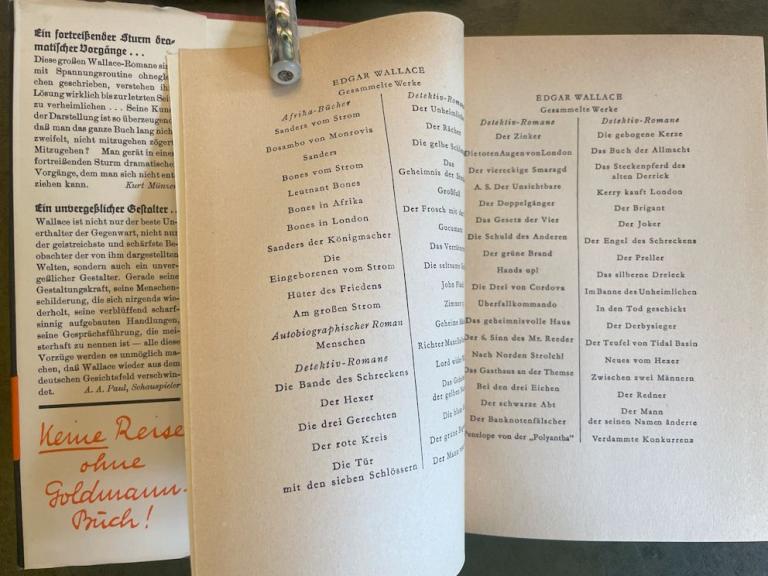 Ein fortreißender Sturm dra-
matischer Vorgänge . . .
Diese großen Wallace-Romane
mit Spannungsroutine
chen geschrieben, verstehen
Lösung wirklich bis zur letzten
zu verheimlichen . . . Seine
der Darstellung ist so überzeugend
daß man das ganze Buch lang nicht
zweifelt, nicht mitzugehen
Mitzugehen? Man gerät in
fortreißenden Sturm
Vorgänge, dem man sich nicht
ziehen kann. Kurt Münzer
Ein unvergeßlicher Gestalter . .
Wallace ist nicht nur der beste Un-
terhalter der Gegenwart, nicht nur
der geistreichste und schärfste Be-
obachter der von ihm dargestellten
Welten, sondern auch ein unver-
geßlicher Gestalter. Gerade seine
Gestaltungskraft, seine Menschen-
schilderung, die sich nirgends wie-
derholt, seine verblüffend scharf-
sinnig aufgebauten Handlungen,
seine Gesprächsführung, die mei-
sterhaft zu nennen ist — alle diese
Vorzüge werden es unmöglich ma-
chen, daß Wallace wieder aus dem
deutschen Gesichtsfeld verschwin-
det. A. A. Paul, Schauspieler
Keine Reise
ohne
Goldmann-
Buch!
EDGAR WALLACE
Gesammelte Werke
Afrika-Bücher
Sanders vom Strom
Bosambo von Monrovia
Sanders
Bones vom Strom
Leutnant Bones
Bones in Afrika
Bones in London
Sanders der Königmacher
Die
Eingeborenen vom Strom
Hüter des Friedens
Am großen Strom
Autobiographischer Roman
Menschen
Detektiv-Romane
Die Bande des Schreckens
Der Hexer
Die drei Gerechten
Der rote Kreis
Die Tür
mit den sieben Schlössern
Der
Der Rächer
Die gelbe
Das
Geheimnis der
Der Frosch mit der
Das
Die seltsame
John
Zimmer
Geheime
Richter
Lord wider
Das
der gelben
Die blaue
Der grüne
Der Mann
EDGAR WALLACE
Gesammelte Werke
Detektiv-Romane
Der Zinker
Die toten Augen von London
Der viereckige Smaragd
A. S. Der Unsichtbare
Der Doppelgänger
Das Gesetz der Vier
Die Schuld des Anderen
Der grüne Brand
Hands up!
Die Drei von Cordova
Überfallkommando
Das geheimnisvolle Haus
Der 6. Sinn des Mr. Reeder
Nach Norden Strolch!
Das Gasthaus an der Themse
Bei den drei Eichen
Der schwarze Abt
Der Banknotenfälscher
Penelope von der „Polyantha“
Detektiv-Romane
Die gebogene Kerze
Das Buch der Allmacht
Das Steckenpferd des
alten Derrick
Kerry kauft London
Der Brigant
Der Joker
Der Engel des Schreckens
Der Preller
Das silberne Dreieck
Im Banne des Unheimlichen
In den Tod geschickt
Der Derbysieger
Der Teufel von Tidal Basin
Neues vom Hexer
Zwischen zwei Männern
Der Redner
Der Mann
der seinen Namen änderte
Verdammte Konkurrenz